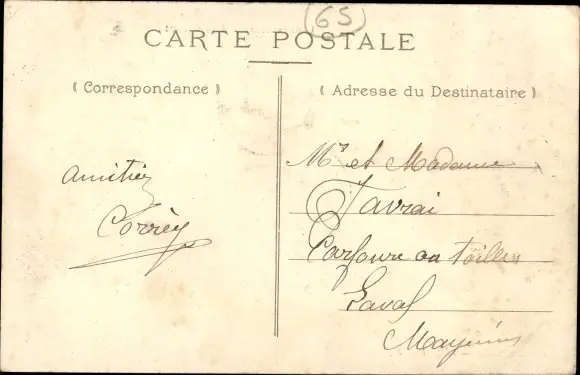 65
CARTE POSTALE
( Correspondance )
( Adresse du Destinataire )
Amitiés
Mr et Madame
Tavrai
Carfour au toiles
Laval
Mayenne